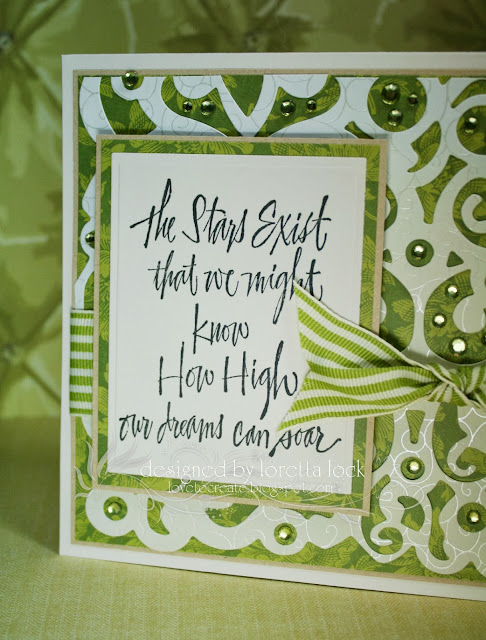 the Stars Exist
that we might
know
How High
our dreams can soar
designed by loretta lock
lovetocreate.blogspot.com